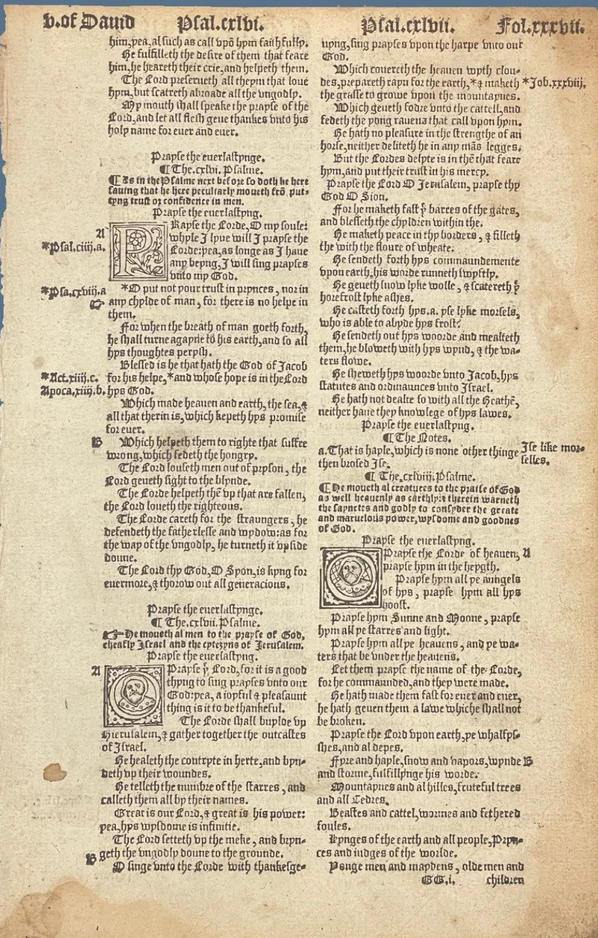 v. of Dauid Psal.cxlvi.
hym, yea, al such as call vpō hym faithfully.
He fulfilleth the desire of them that feare
him, he heareth their crie, and helpeth them.
The Lord preserueth all theym that loue
hym, but scatreth abroade all the vngodly.
My mouth shall speake the prayse of the
Lord, and let all flesh geue thankes vnto his
holy name for euer and euer.
Prayse the euerlastynge.
¶ The .cxlvi. Psalme.
¶ As in the Psalme next before so doth he here
sauing that he here peculiarly moueth frō put-
tyng trust or confidence in men.
Prayse the euerlastyng.
A
PRayse the Lorde, O my soule:
whyle I lyue will I prayse the
*Psal.ciiij.a.
Lorde: yea, as long as I haue
any beyng, I will sing prayses
vnto my God.
*Psa.cxviij.a
*O put not your trust in prynces, nor in
any chylde of man, for there is no helpe in
them.
For when the breath of man goeth forth,
he shall turne agayne to his earth, and so all
hys thoughtes perysh.
Blessed is he that hath the God of Jacob
*Act.xiiij.c.
for his helpe, *and whose hope is in the Lord
Apoca.xiiij.b.
hys God.
Which made heauen and earth, the sea, &
all that therin is, which kepeth hys promise
for euer.
B
Which helpeth them to right that suffre
wrong, which fedeth the hongry.
The Lord louseth men out of pryson, the
Lord geueth sight to the blynde.
The Lorde helpeth thē vp that are fallen,
the Lord loueth the righteous.
The Lord careth for the straungers, he
defendeth the fatherlesse and wydow: as for
the way of the vngodly, he turneth it vpside
doune.
The Lord thy God, O Syon, is kyng for
euermore, & thorow out all generacions.
Prayse the euerlastynge.
¶ The .cxlvii. Psalme.
He moueth al men to the prayse of God,
chiefly Israel and the cytezyns of Jerusalem.
Prayse the euerlastyng.
A
O Prayse yͤ Lord, for it is a good
thyng to sing prayses vnto our
God: yea, a ioyful & pleasaunt
thing is it to be thankeful.
The Lorde shall buylde vp
Hierusalem, & gather together the outcastes
of Israel.
He healeth the contryte in herte, and byn-
deth vp their woundes.
He telleth the numbre of the starres, and
calleth them all by their names.
Great is our Lord, & great is his power:
yea, hys wysdome is infinitie.
The Lord setteth vp the meke, and bryn-
B
geth the vngodly doune to the grounde.
O singe vnto the Lorde with thankesge-
Psal.cxlvii. Fol.xxxvii.
uyng, sing prayses vpon the harpe vnto our
God.
Which couereth the heauen wyth clou-
des, prepareth rayn for the earth, *& maketh
*Job.xxxviij.
the grasse to growe vpon the mountaynes.
Which geueth fodre vnto the cattell, and
fedeth the yong rauens that call vpon hym.
He hath no pleasure in the strengthe of an
horse, neither deliteth he in any mās legges.
But the Lordes delyte is in thē that feare
hym, and put their trust in his mercy.
Prayse the Lord O Jerusalem, prayse thy
God O Sion.
For he maketh fast yͤ barres of the gates,
and blesseth the chyldren within the.
He maketh peace in thy borders, & filleth
the with the floure of wheate.
He sendeth forth hys commaundemente
vpon earth, his worde runneth swyftly.
He geueth snow lyke wolle, & scatereth yͤ
hore frost lyke ashes.
He casteth forth hys .a. yse lyke morsels,
who is able to abyde hys frost?
He sendeth out hys woorde and mealteth
them, he bloweth with hys wynd, & the wa-
ters flowe.
He sheweth hys woorde vnto Jacob, hys
statutes and ordinaunces vnto Israel.
He hath not dealte so with all the Heathē,
neither haue they knowlege of hys lawes.
Prayse the euerlastyng.
¶ The Notes.
a. That is hayle, which is none other thinge
Ise like mor-
selles.
then brosed Ise.
¶ The .cxlviii. Psalme.
¶ He moueth al creatures to the praise of God
as well heauenly as earthly: & therein warneth
the sayncts and godly to consyder the greate
and marvelous power, wysdome and goodnes
of God.
Prayse the euerlastyng.
A
O Prayse the Lorde of heauen,
prayse hym in the heygth.
Prayse hym all ye aungels
of hys, prayse hym all hys
hoost.
Prayse hym Sunne and Moone, prayse
hym all ye starres and light.
Prayse hym all ye heauens, and ye wa-
ters that be vnder the heauens.
Let them prayse the name of the Lorde,
for he commaunded, and they were made.
He hath made them fast for euer and euer,
he hath geuen them a lawe whiche shall not
be broken.
Prayse the Lord vpon earth, ye whalfys-
shes, and al depes.
Fyre and hayle, snow and vapors, wynde
B
and storme, fulfillynge his worde.
Mountaynes and al hilles, fruteful trees
and all Cedres.
Beastes and cattel, wormes and fethered
foules.
Kynges of the earth and all people, Pryn-
ces and iudges of the worlde.
Yonge men and maydens, olde men and
GG.i. children